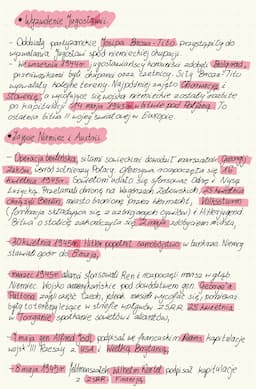 • Wyzwolenie Jugosławii
- Oddziały partyzanckie Josipa Broza-Tito przystąpiły do
wyzwalania Jugosławii spod niemieckiej okupacji.
- We wrześniu 1944r. jugosłowiańscy komuniści zdobyli Belgrad,
przeciwnikami byli okupanci oraz czetnicy. Siły Broza-Tito
wyzwalały kolejne tereny. Najpóźniej zajęto Chorwację i
Słowenię, a wycofujące się wojska niemieckie zostały zmuszone
do kapitulacji 14 maja 1945r. w bitwie pod Poljaną. To
ostatnia bitwa II wojny światowej w Europie.
• Zajęcie Niemiec i Austrii
- Operacja berlińska, siłami sowieckimi dowodził marszałek Gieorgij
Żukow, wśród żołnierzy Polacy. Ofensywa rozpoczęła się 16
kwietnia 1945r. Sowietom udało się sforsować Odrę i Nysę
Łużycką. Przełamali obronę na Wzgórzach Zelowskich. 25 kwietnia
okrążyli Berlin, miasto bronione przez Wehrmacht, Volkssturm
(formacja składająca się z uzbrojonych cywilów) i Hitlerjugend
Bitwa o stolicę zakończyła się 2 maja zdobyciem miasta,
- 30 kwietnia 1945r. Hitler popełnił samobójstwo w bunkrze. Niemcy
stawiali opór do 8 maja,
- marzec 1945r. alianci sforsowali Ren i rozpoczęli marsz w głąb
Niemiec. Wojsko amerykańskie pod dowództwem gen. George'a
Pattona zajęli część Czech, jednak musieli wycofać się, ponieważ
były to tereny leżące w strefie wpływów ZSRR. 25 kwietnia
w Torgawie spotkanie sowietów i aliantów,
- 7 maja gen. Alfred Jodl podpisał we francuskim Reims kapitulację
wojsk III Rzeszy z USA i Wielką Brytanią,
- 8 maja 1945r. feldmarszałek Wilhelm Keitel podpisał kapitulację
z ZSRR i Francją.